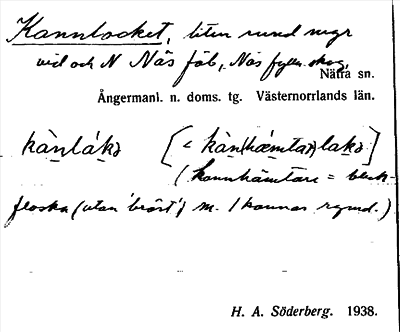 Kannlocket, liten rund myr
vid och N Näs fäb, Näs fylln. skog,
Nätra sn.
Ångermanl. n. doms. tg. Västernorrlands län.
kànlákə [< kàn(hæmtar)lakə]
(kannhämtare = bleck-
flaska (utan bröst) m. 1 kannas rymd.)
H. A. Söderberg. 1938.